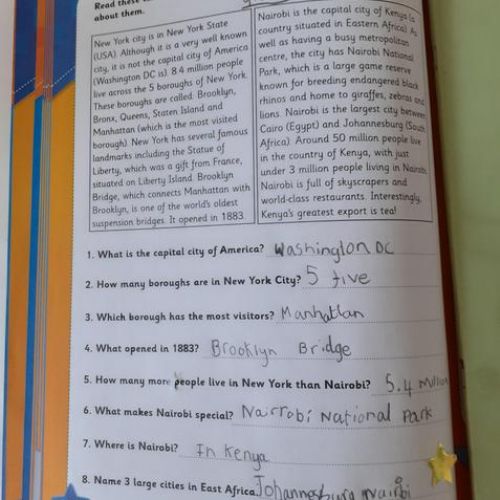 Read these
about them.
New York city is in New York State
(USA). Although it is a very well known
city, it is not the capital city of America
(Washington DC is). 8.4 million people
live across the 5 boroughs of New York.
These boroughs are called: Brooklyn,
Bronx, Queens, Staten Island and
Manhattan (which is the most visited
borough). New York has several famous
landmarks including the Statue of
Liberty, which was a gift from France,
situated on Liberty Island. Brooklyn
Bridge, which connects Manhattan with
Brooklyn, is one of the world's oldest
suspension bridges. It opened in 1883.
Nairobi is the capital city of Kenya (a
country situated in Eastern Africa). As
well as having a busy metropolitan
centre, the city has Nairobi National
Park, which is a large game reserve
known for breeding endangered black
rhinos and home to giraffes, zebras and
lions. Nairobi is the largest city between
Cairo (Egypt) and Johannesburg (South
Africa). Around 50 million people live
in the country of Kenya, with just
under 3 million people living in Nairobi.
Nairobi is full of skyscrapers and
world-class restaurants. Interestingly,
Kenya's greatest export is tea!
1. What is the capital city of America? Washington DC
2. How many boroughs are in New York City? 5 five
3. Which borough has the most visitors? Manhattan
4. What opened in 1883? Brooklyn Bridge
5. How many more people live in New York than Nairobi? 5.4 Million
6. What makes Nairobi special? Nairrobi National Park
7. Where is Nairobi? In Kenya
8. Name 3 large cities in East Africa. Johannesburg